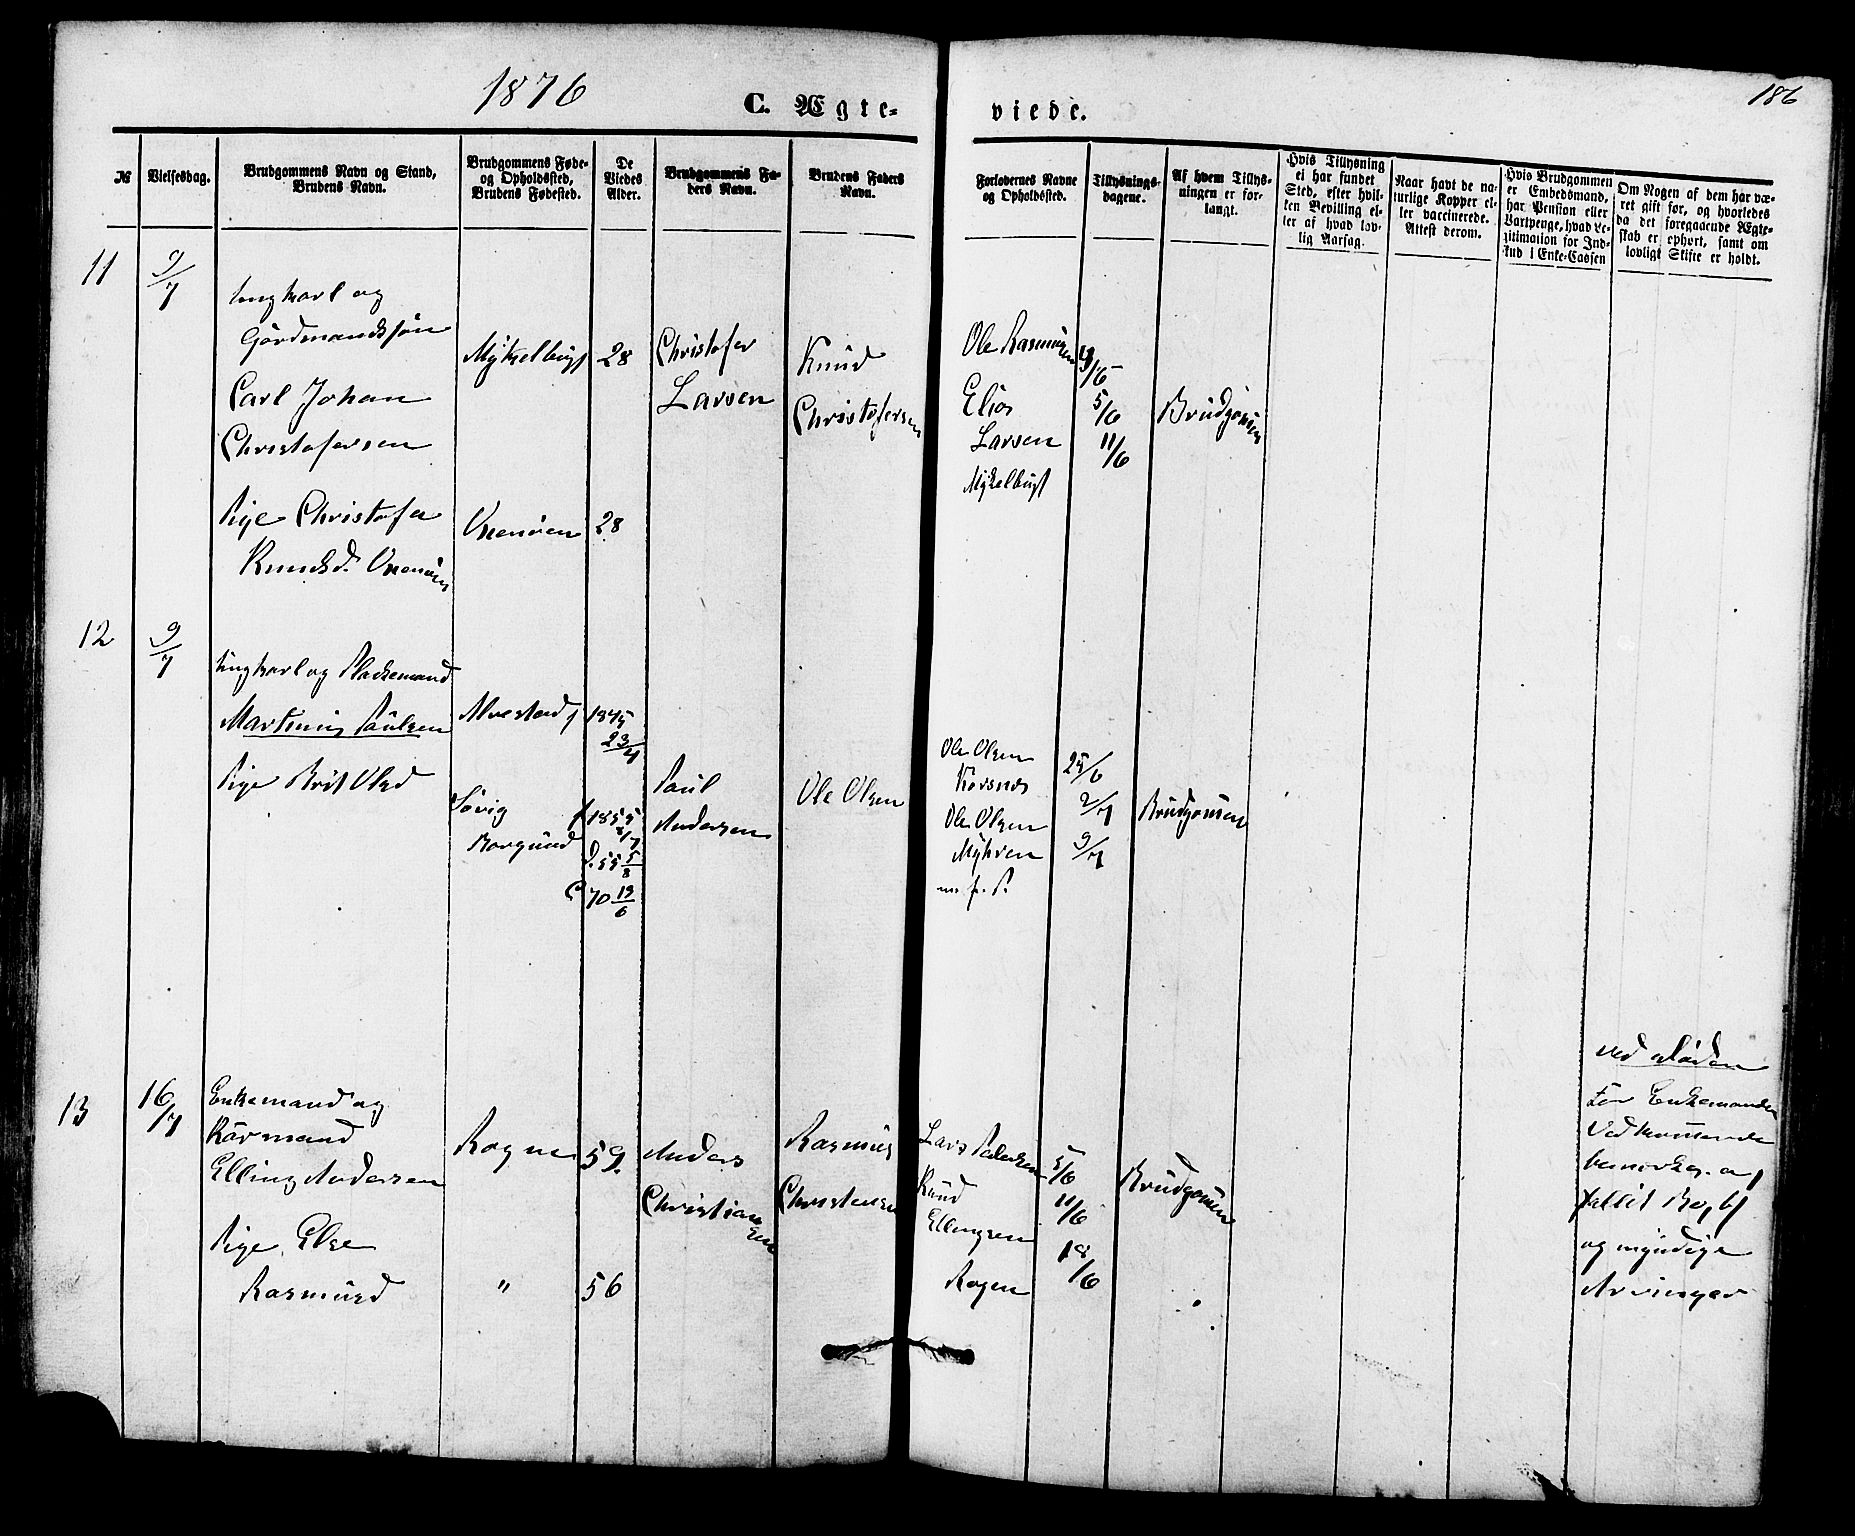 1876
C. Ægte-
viede.
186
№
Vielsesdag.
Brudgommens Navn og Stand,
Brudens Navn.
Brudgommens Føde-
og Opholdssted,
Brudens Fødested.
De
Viedes
Alder.
Brudgommens Fa-
ders Navn.
Brudens Faders
Navn.
Forlovernes Navne
og Opholdssted.
Tillysnings-
dagene.
Af hvem Tillys-
ningen er for-
langt.
Hvis Tillysning
ei har fundet
Sted, efter hvil-
ken Bevilling el-
ler af hvad lov-
lig Aarsag.
Naar havt de na-
turlige Kopper el-
ler vaccinerede.
Attest derom.
Hvis Brudgommen
er Embedsmand,
har Pension eller
Vartpenge, hvad Le-
gitimation for Ind-
skud i Enke-Cassen
Om Nogen af dem har væ-
ret gift før, og hvorledes
da det foregaaende Ægte-
skab er ophørt, samt om
lovligt Skifte er holdt.
11
9/7
Ungkarl og
Gårdmandssøn
Carl Johan
Christofersen
Myklebust
28
Christofer
Larsen
Knud
Christofersen
Ole Rasmussen
Elias
Larsen
Myklebust
5/6
11/6
Brudgommen
Pige Christofa
Knudsd.
28
12
9/7
Ungkarl og Pladsemand
Martinus Paulsen
Alvestad
1845
23/4
Pige Brit Olsd
Søvig
Borgund
1855
D. 55 5/8
C 70 19/6
Paul
Andersen
Ole Olsen
Ole Olsen
Korsnes
Ole Olsen
Myhren
m. f. P.
25/6
2/7
9/7
Brudgommen
13
16/7
Enkemand og
Kårmand
Elling Andersen
Rogne
59.
Anders
Christian
sen
Rasmus
Christensen
Lars Pedersen
Knud
Ellingsen
Rogne
5/6
11/6
18/6
Brudgommen
Pige Else
Rasmusd
"
56
ved Døden
For Enkemanden
Vedkommende
og myndige
Arvinger